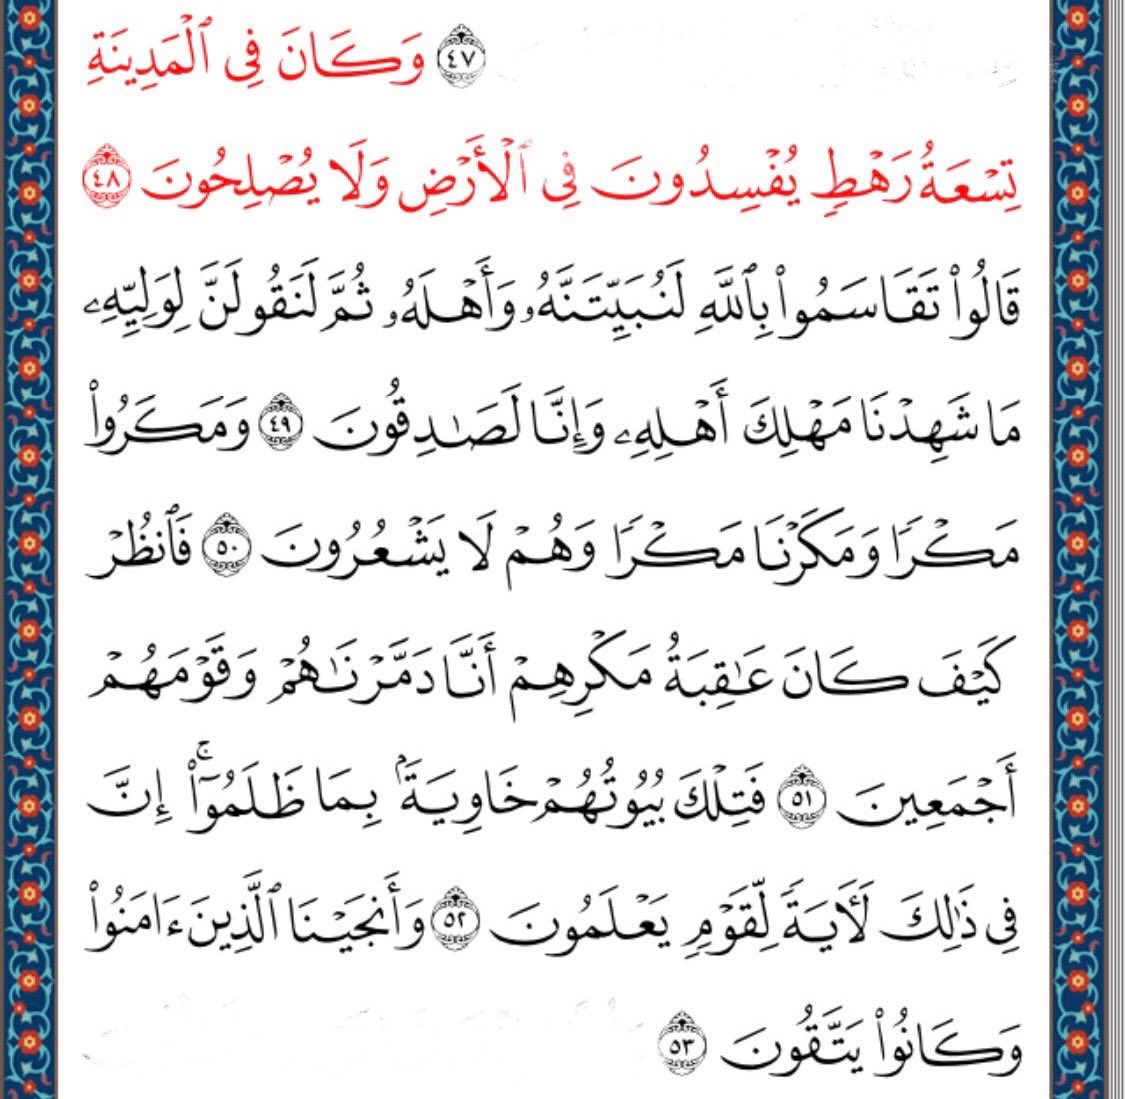 ﴿٤٧﴾ وَكَانَ فِي ٱلْمَدِينَةِ
تِسْعَةُ رَهْطٍ يُفْسِدُونَ فِي ٱلْأَرْضِ وَلَا يُصْلِحُونَ ﴿٤٨﴾
قَالُوا۟ تَقَاسَمُوا۟ بِٱللَّهِ لَنُبَيِّتَنَّهُۥ وَأَهْلَهُۥ ثُمَّ لَنَقُولَنَّ لِوَلِيِّهِۦ
مَا شَهِدْنَا مَهْلِكَ أَهْلِهِۦ وَإِنَّا لَصَـٰدِقُونَ ﴿٤٩﴾ وَمَكَرُوا۟
مَكْرًا وَمَكَرْنَا مَكْرًا وَهُمْ لَا يَشْعُرُونَ ﴿٥٠﴾ فَٱنظُرْ
كَيْفَ كَانَ عَـٰقِبَةُ مَكْرِهِمْ أَنَّا دَمَّرْنَـٰهُمْ وَقَوْمَهُمْ
أَجْمَعِينَ ﴿٥١﴾ فَتِلْكَ بُيُوتُهُمْ خَاوِيَةًۢ بِمَا ظَلَمُوٓا۟ ۚ إِنَّ
فِي ذَٰلِكَ لَـَٔايَةً لِّقَوْمٍ يَعْلَمُونَ ﴿٥٢﴾ وَأَنجَيْنَا ٱلَّذِينَ ءَامَنُوا۟
وَكَانُوا۟ يَتَّقُونَ ﴿٥٣﴾